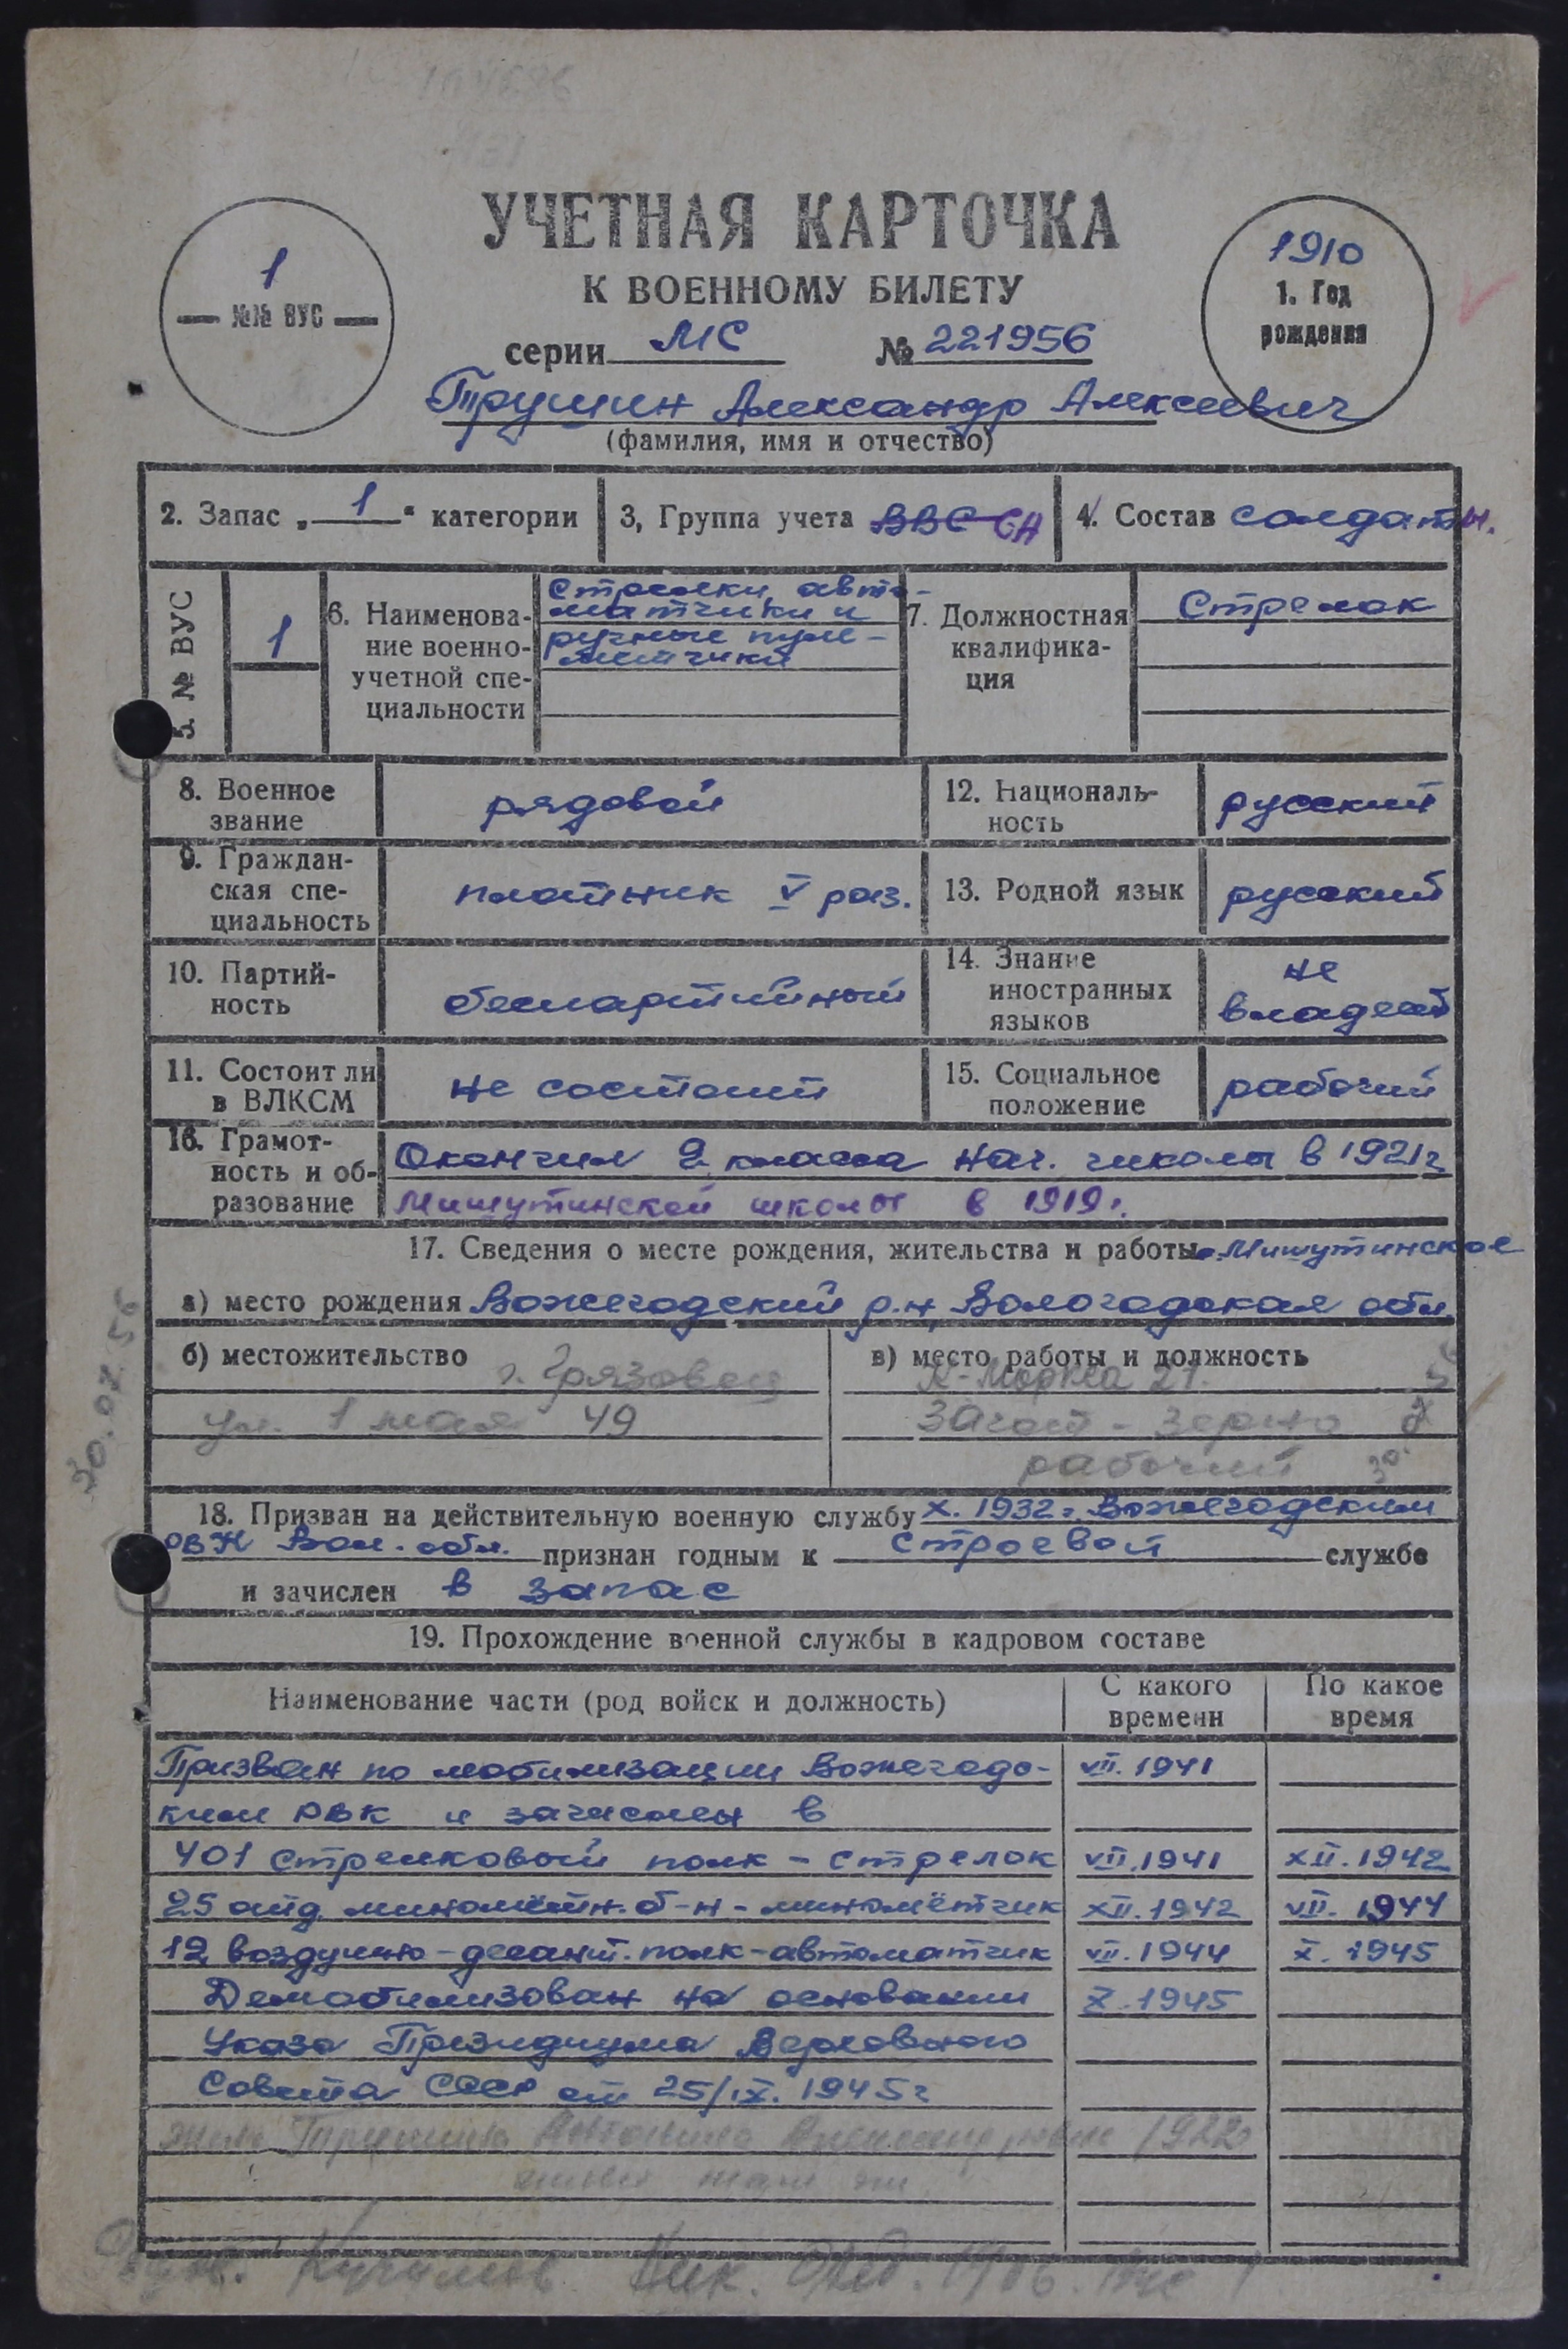 УЧЕТНАЯ КАРТОЧКА
К ВОЕННОМУ БИЛЕТУ
1
№№ ВУС
1910
1. Год
рождения
серии МС № 221956
Трушин Александр Алексеевич
(фамилия, имя и отчество)
2. Запас „1“ категории
3, Группа учета ВВС СА
4. Состав солдаты.
5. № ВУС
1
6. Наименова-
ние военно-
учетной спе-
циальности
Стрелки, авто-
матчики и
ручные пуле-
метчики
7. Должностная
квалифика-
ция
Стрелок
8. Военное
звание
рядовой
12. Националь-
ность
русский
9. Граждан-
ская спе-
циальность
плотник V раз.
13. Родной язык
русский
10. Партий-
ность
беспартийный
14. Знание
иностранных
языков
не
владеет
11. Состоит ли
в ВЛКСМ
не состоит
15. Социальное
положение
рабочий
16. Грамот-
ность и об-
разование
Окончил 2 класса нач. школы в 1921г
Мишутинской школы в 1919г.
17. Сведения о месте рождения, жительства и работы Мишутинское
а) место рождения Вожегодский р-н, Вологодская обл.
б) местожительство
г. Грязовец
ул. 1 мая 49
в) место работы и должность
К-Маркса 21.
Загот-зерно
рабочий
30.07.56
18. Призван на действительную военную службу X. 1932г. Вожегодским
РВК Вол. обл. признан годным к строевой службе
и зачислен в запас
19. Прохождение военной службы в кадровом составе
Наименование части (род войск и должность)
С какого
времени
По какое
время
Призван по мобилизации Вожегодс- VII. 1941
ким РВК и зачислен в
401 стрелковый полк - стрелок VII. 1941 XII. 1942
25 отд. миномётн. б-н - миномётчик XII. 1942 VII. 1944
12 воздушно-десант. полк - автоматчик VII. 1944 X. 1945
Демобилизован на основании X. 1945
Указа Президиума Верховного
Совета СССР от 25/IX. 1945г
жена Трушина 1922